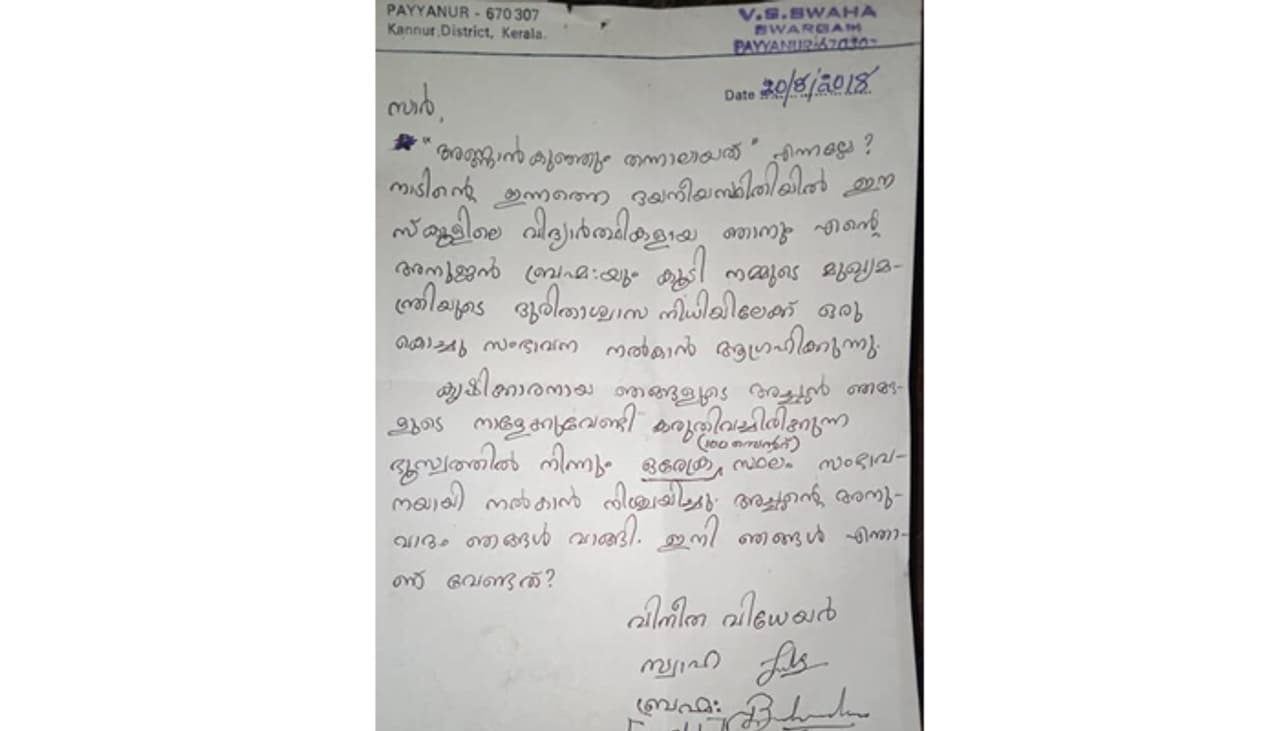 PAYYANUR - 670307
Kannur District, Kerala.
V.S.SWAHA
SWARGAM
PAYYANUR-670307
Date 20/8/2018
സാർ,
"അണ്ണാൻകുഞ്ഞും തന്നാലായത്" എന്നല്ലേ?
നാടിന്റെ ഇന്നത്തെ ദയനീയസ്ഥിതിയിൽ ഈ
സ്കൂളിലെ വിദ്യാർത്ഥികളായ ഞാനും എന്റെ
അനുജൻ ബ്രഹ്മ:യും കൂടി നമ്മുടെ മുഖ്യമ-
ന്ത്രിയുടെ ദുരിതാശ്വാസ നിധിയിലേക്ക് ഒരു
കൊച്ചു സംഭാവന നൽകാൻ ആഗ്രഹിക്കുന്നു.
കൃഷിക്കാരനായ ഞങ്ങളുടെ അച്ഛൻ ഞങ്ങ-
ളുടെ നാളേക്കുവേണ്ടി കരുതിവച്ചിരിക്കുന്ന
(100 സെന്റ്)
ഭൂസ്വത്തിൽ നിന്നും ഒരേക്ര സ്ഥലം സംഭാവ-
നയായി നൽകാൻ നിശ്ചയിച്ചു. അച്ഛന്റെ അനു-
വാദം ഞങ്ങൾ വാങ്ങി. ഇനി ഞങ്ങൾ എന്താ-
ണ് വേണ്ടത്?
വിനീത വിധേയർ
സ്വാഹ
ബ്രഹ്മ: